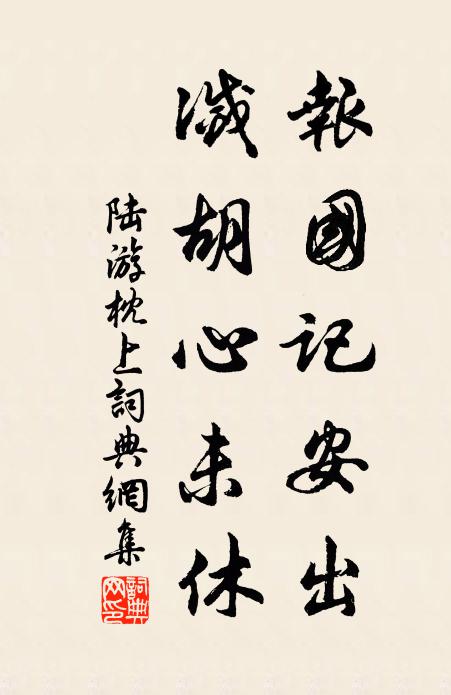 報國記安出
滅胡心未休
陆游枕上詞典網集
詞典网印